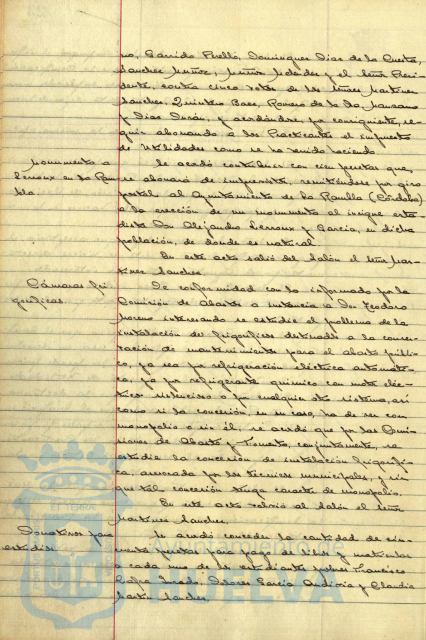 no, Garrido Perelló, Dominguez Dias de la Cuesta,
Sanchez Muñoz, Muñoz y el Señor Presi-
dente, contra cinco votos de los Señores Martinez
Sanchez, Quintero Baez, Romero de la
y Dias Durán, y acordándose, por consiguiente, se-
guir abonando a los Practicantes el impuesto
de Utilidades como se ha venido haciendo.
Monumento a
Lerroux en la Ram-
bla.
Se acordó contribuir con cien pesetas que,
se abonará de imprevistos, remitiéndose por giro
postal al Ayuntamiento de la Rambla (Córdoba)
a la erección de un monumento al insigne esta-
dista Don Alejandro Lerroux y Garcia, en dicha
población, de donde es natural.
En este acto salió del Salón el Señor Mar-
tinez Sanchez.
Cámaras fri-
gorificas.
De conformidad con lo informado por la
Comisión de Abastos a instancia de Don Teodoro
Moreno interesando se estudie el problema de la
instalación de frigorificos destinados a la conser-
vación de mantenimientos para el abasto públi-
co, ya sea por refrigeración eléctrica automáti-
ca, ya por refrigerante quimico con motor eléc-
trico silencioso o por cualquier otro sistema, asi
como si la concesión, en su caso, ha de ser con
monopolio o sin él, se acordó que por las Comi-
siones de Abastos y Fomento, conjuntamente, se
estudie la concesión de instalación frigorifi-
ca, asesorada por los técnicos municipales, y sin
que tal concesión tenga caracter de monopolio.
En este acto volvió al Salón el Señor
Martinez Sanchez.
Donativos para
estudios.
Se acordó conceder la cantidad de cin-
cuenta pesetas para pago de libros y matriculas
a cada uno de los estudiantes pobres Francisco
Jurado, Garcia y Claudio
Martin Sanchez.
HUELVA